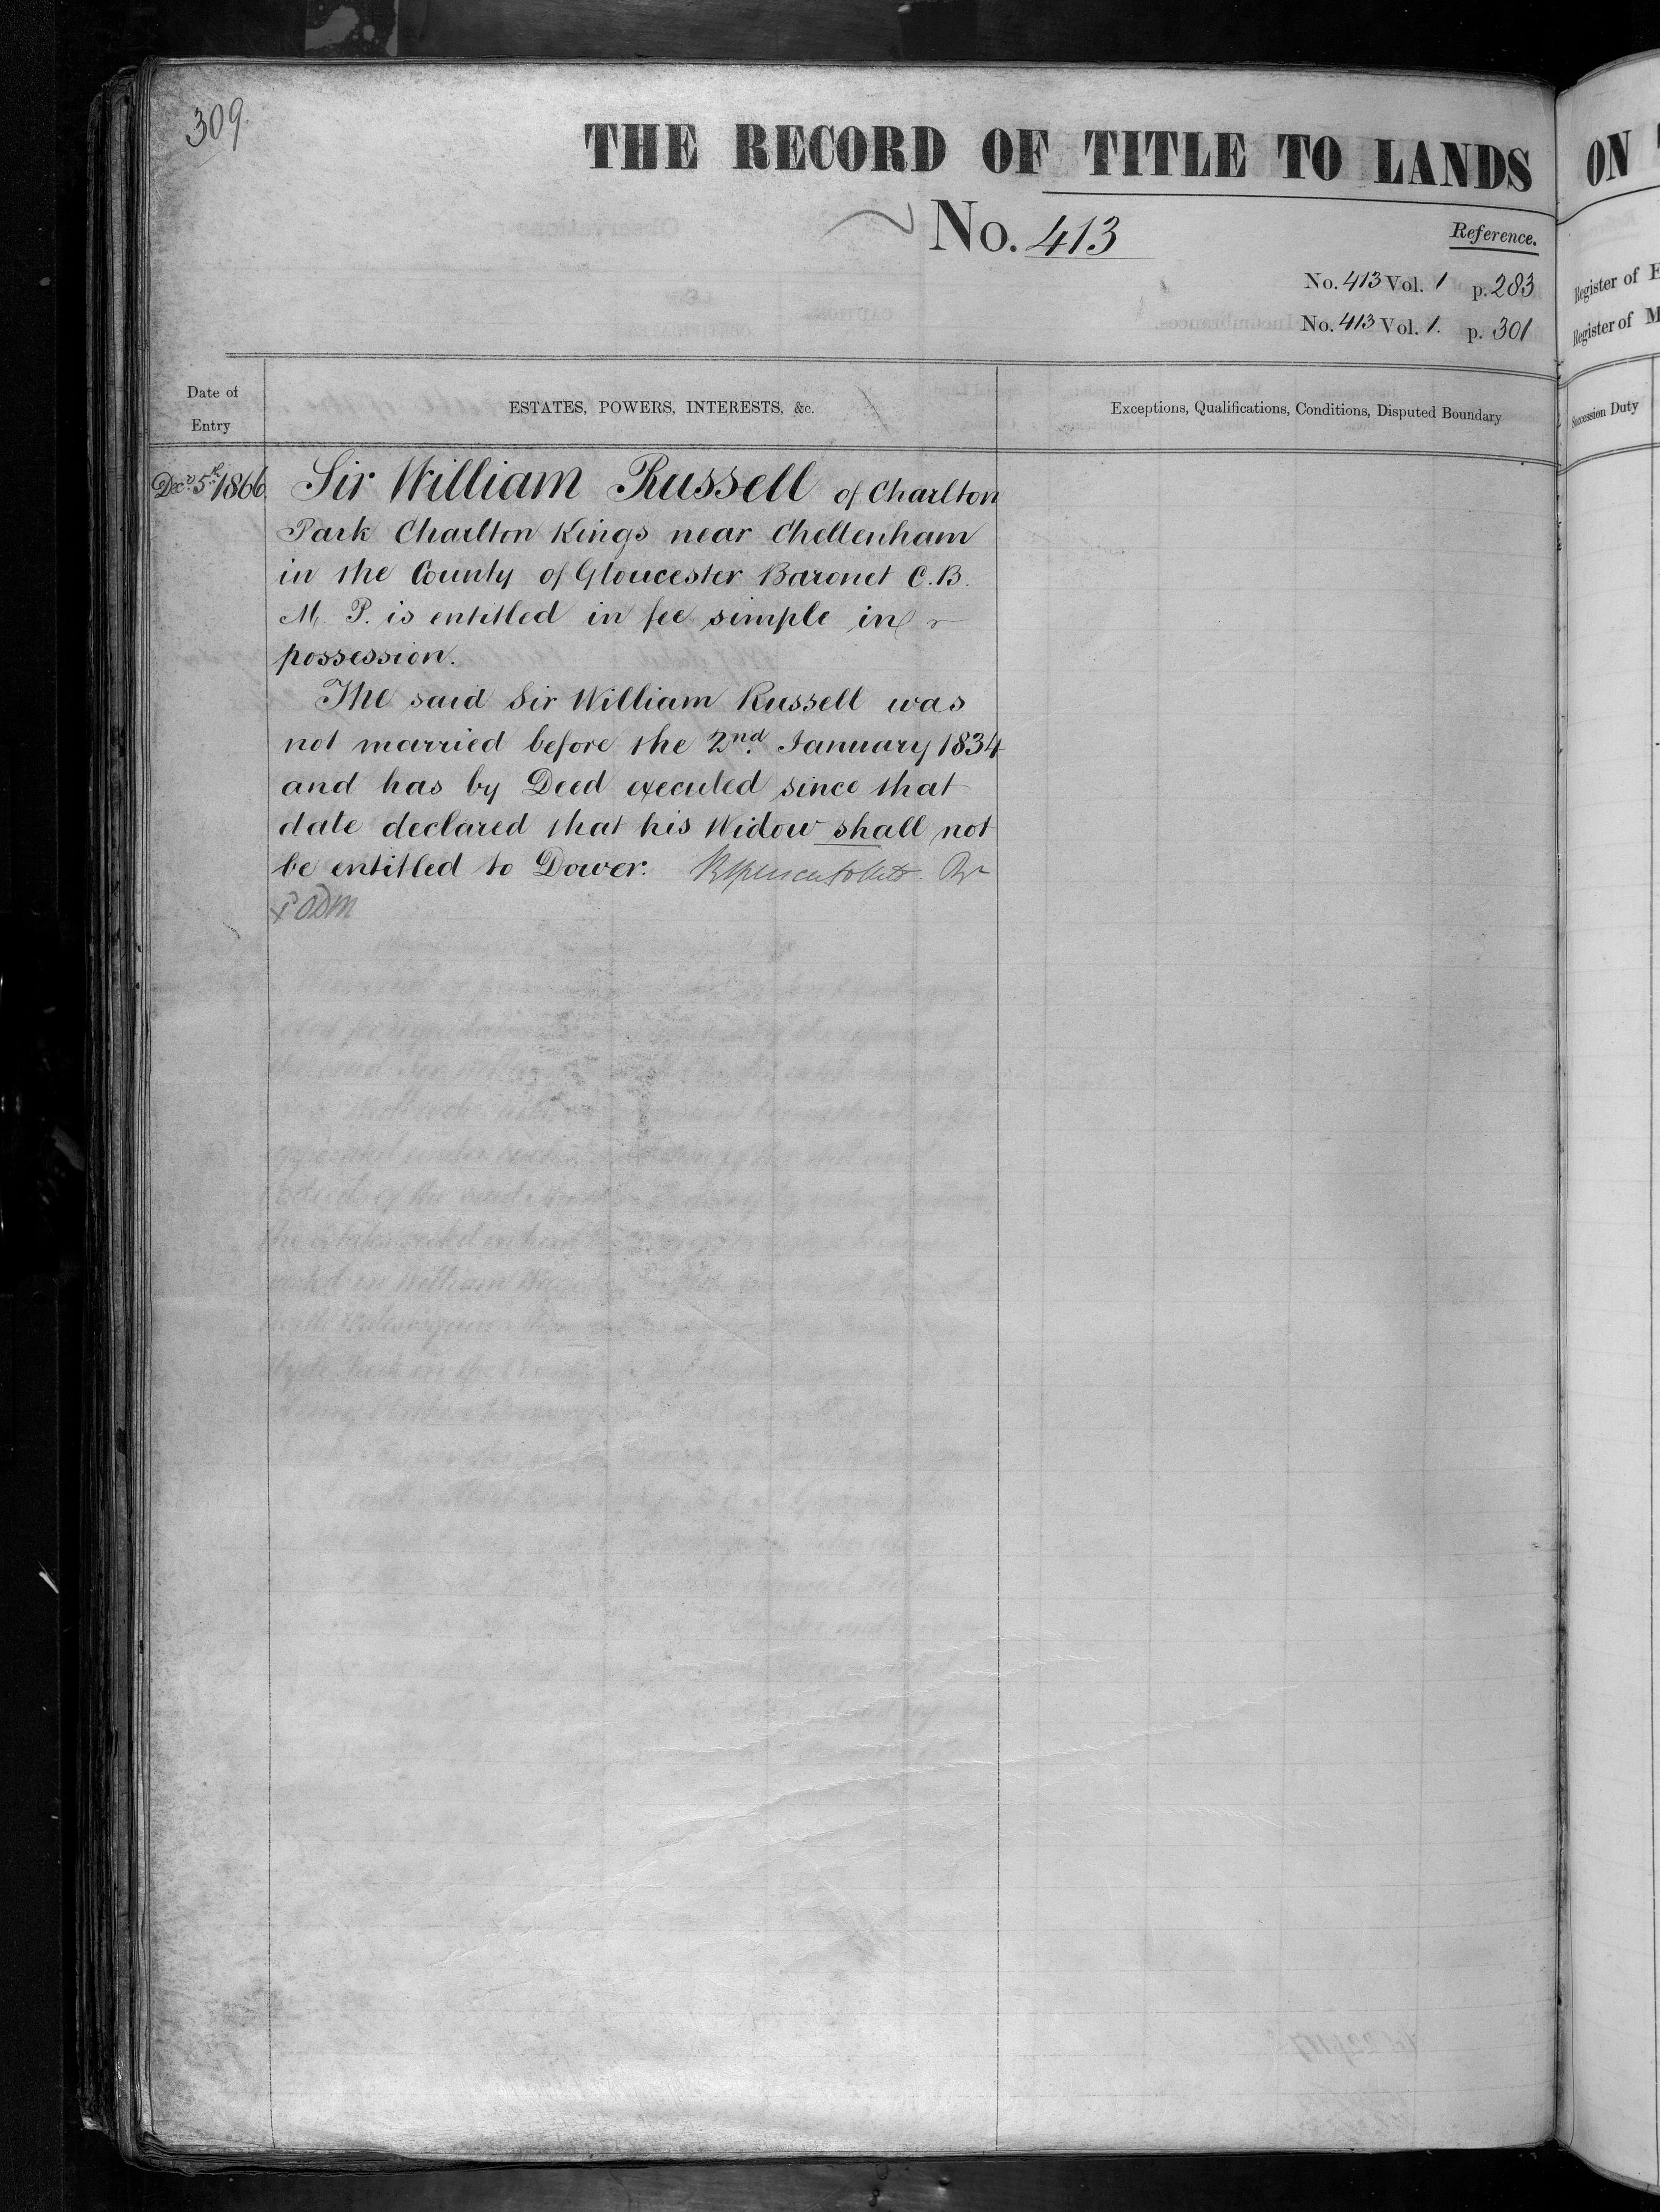 309.
THE RECORD OF TITLE TO LANDS
No. 413
Reference.
No. 413 Vol. 1 p. 283
No. 413 Vol. 1. p. 301
Date of Entry
ESTATES, POWERS, INTERESTS, &c.
Exceptions, Qualifications, Conditions, Disputed Boundary
Decr. 5th 1866. Sir William Russell of Charlton
Park Charlton Kings near Cheltenham
in the County of Gloucester Baronet C.B.
M. P. is entitled in fee simple in
possession.
The said Sir William Russell was
not married before the 2nd. January 1834
and has by Deed executed since that
date declared that his Widow shall not
be entitled to Dower.
ON
Register of
Register of
Succession Duty